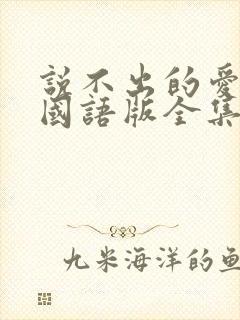 説不出的愛
國語版全集
九米海洋的魚